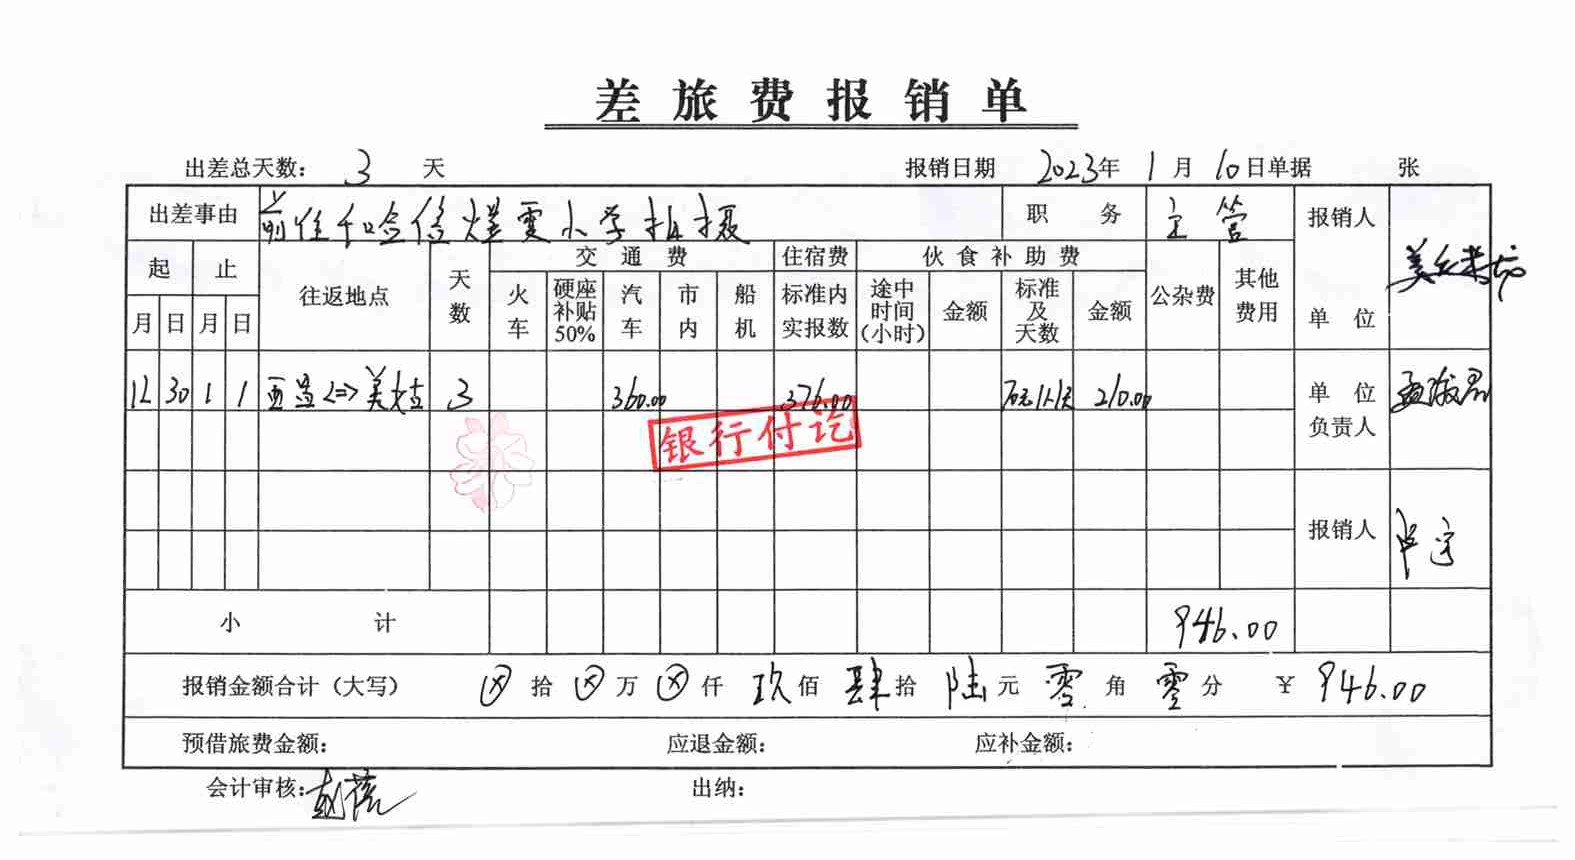 差旅费报销单
出差总天数： 3 天 报销日期 2023年 1月 10日单据 张
出差事由 前往和合信 小学拍摄 职务 主管 报销人
起 止 往返地点 天数 交通费 住宿费 伙食补助费 公杂费 其他费用
月 日 月 日 火车 硬座补贴50% 汽车 市内 船机 标准内实报数 途中时间(小时) 金额 标准及天数 金额 单位
12 30 1 1 西 <=> 美姑 3 360.00 376.00 210.00 单位负责人
银行付讫
报销人
小计 946.00
报销金额合计（大写） ⊗拾 ⊗万 ⊗仟 玖佰 肆拾 陆元 零角 零分 ￥ 946.00
预借旅费金额： 应退金额： 应补金额：
会计审核： 出纳：